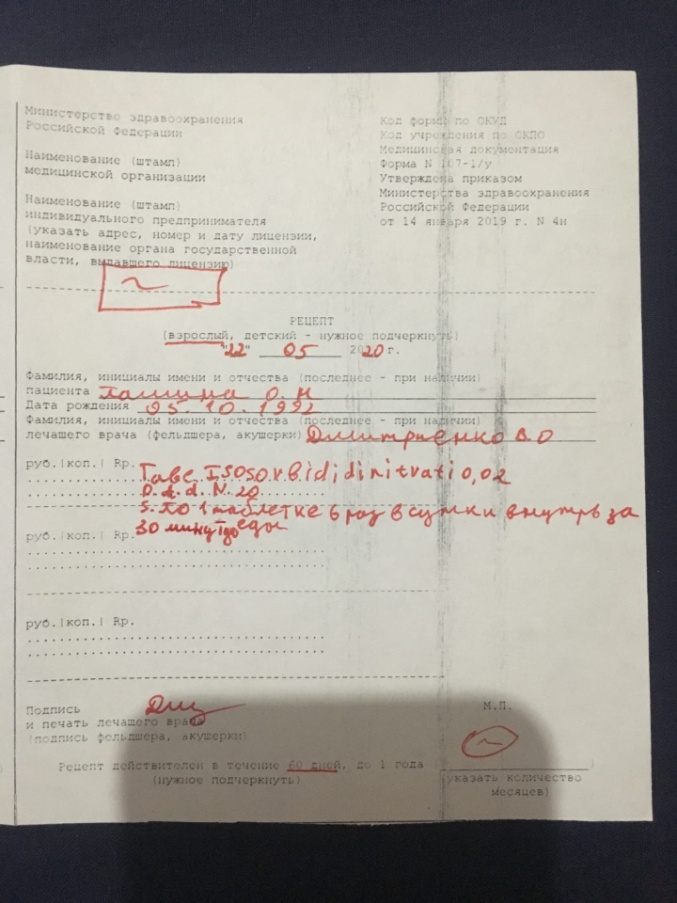 Министерство здравоохранения
Российской Федерации
Наименование (штамп)
медицинской организации
Наименование (штамп)
индивидуального предпринимателя
(указать адрес, номер и дату лицензии,
наименование органа государственной
власти, выдавшего лицензию)
Код формы по ОКУД
Код учреждения по ОКПО
Медицинская документация
Форма N 107-1/у
Утверждена приказом
Министерства здравоохранения
Российской Федерации
от 14 января 2019 г. N 4н
РЕЦЕПТ
(взрослый, детский - нужное подчеркнуть)
"22" 05 2020 г.
Фамилия, инициалы имени и отчества (последнее - при наличии)
пациента О.Н
Дата рождения 05.10.1992
Фамилия, инициалы имени и отчества (последнее - при наличии)
лечащего врача (фельдшера, акушерки) Дмитриенко В.О
руб.|коп.| Rp. Tabl Isosorbidi dinitrati 0,02
D.t.d. N. 20
S. По 1 таблетке 6 раз в сутки внутрь за
руб.|коп.| Rp. 30 минут до еды
руб.|коп.| Rp.
Подпись
и печать лечащего врача
(подпись фельдшера, акушерки)
М.П.
Рецепт действителен в течение 60 дней, до 1 года (
)
(нужное подчеркнуть)
(указать количество
месяцев)